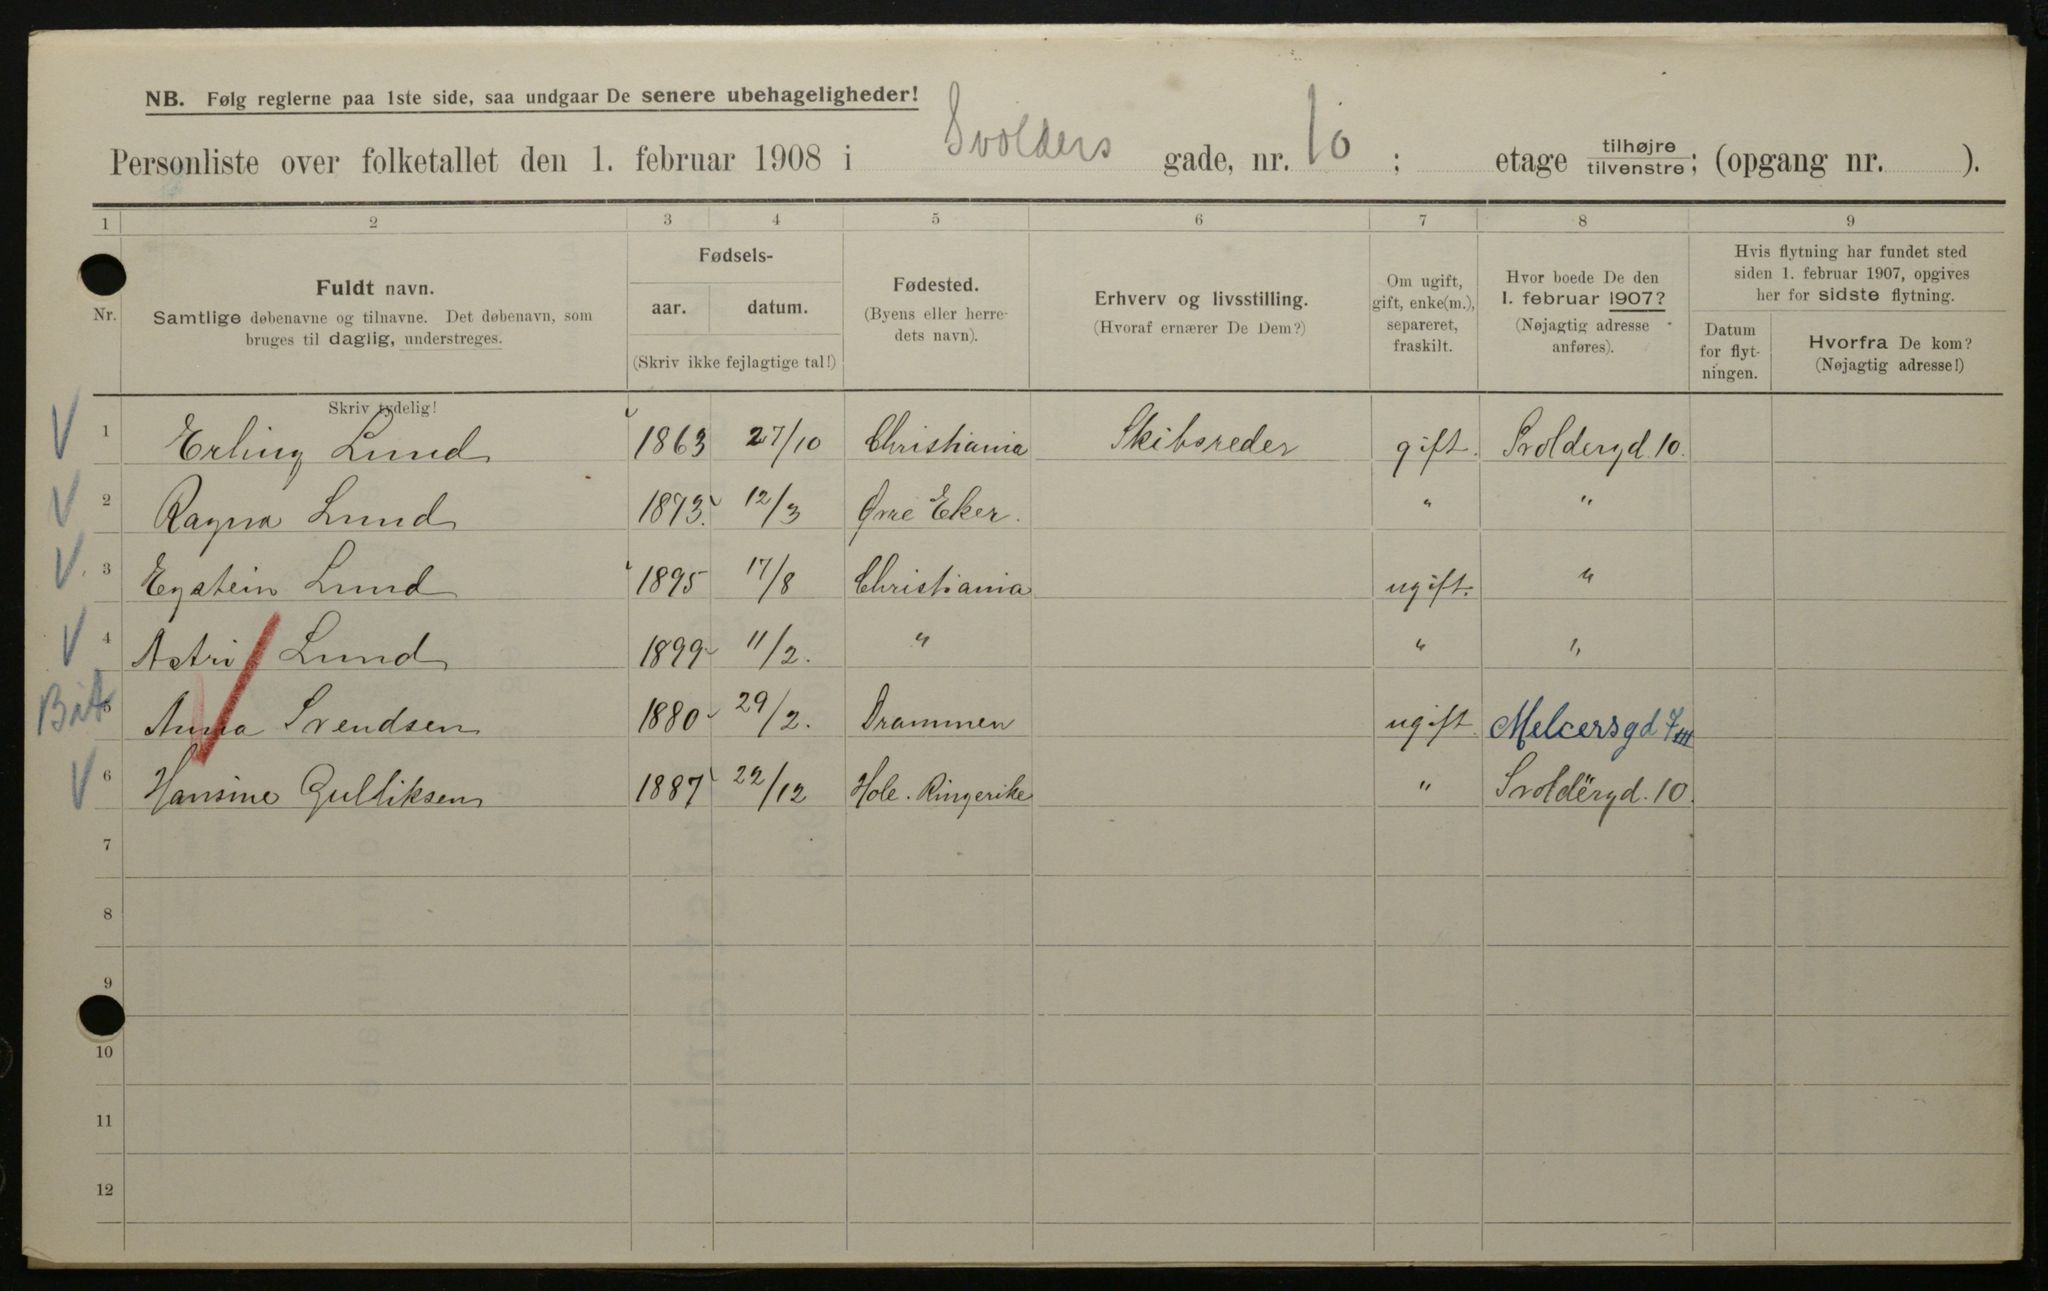 NB. Følg reglerne paa 1ste side, saa undgaar De senere ubehageligheder!
Personliste over folketallet den 1. februar 1908 i Svolders gade, nr. 10 ; etage tilhøjre/tilvenstre; (opgang nr. ).
1 2 3 4 5 6 7 8 9
Nr.
Fuldt navn.
Samtlige døbenavne og tilnavne. Det døbenavn, som
bruges til daglig, understreges.
Fødsels-
aar. datum.
(Skriv ikke fejlagtige tal!)
Fødested.
(Byens eller herre-
dets navn).
Erhverv og livsstilling.
(Hvoraf ernærer De Dem?)
Om ugift,
gift, enke(m.),
separeret,
fraskilt.
Hvor boede De den
1. februar 1907?
(Nøjagtig adresse
anføres).
Hvis flytning har fundet sted
siden 1. februar 1907, opgives
her for sidste flytning.
Datum
for flyt-
ningen.
Hvorfra De kom?
(Nøjagtig adresse!)
Skriv tydelig!
1 Erling Lund 1863 27/10 Christiania Skibsreder gift. Svoldergd. 10.
2 Ragna Lund 1873. 12/3 Øvre Eker. " "
3 Eystein Lund 1895 17/8 Christiania ugift. "
4 Astri Lund 1899 11/2. " " "
5 Anna Svendsen 1880 29/2. Drammen ugift Melcersgd 7 III
6 Hansine Gulliksen 1887 22/12 Hole. Ringerike " Svoldergd. 10.
7
8
9
10
11
12